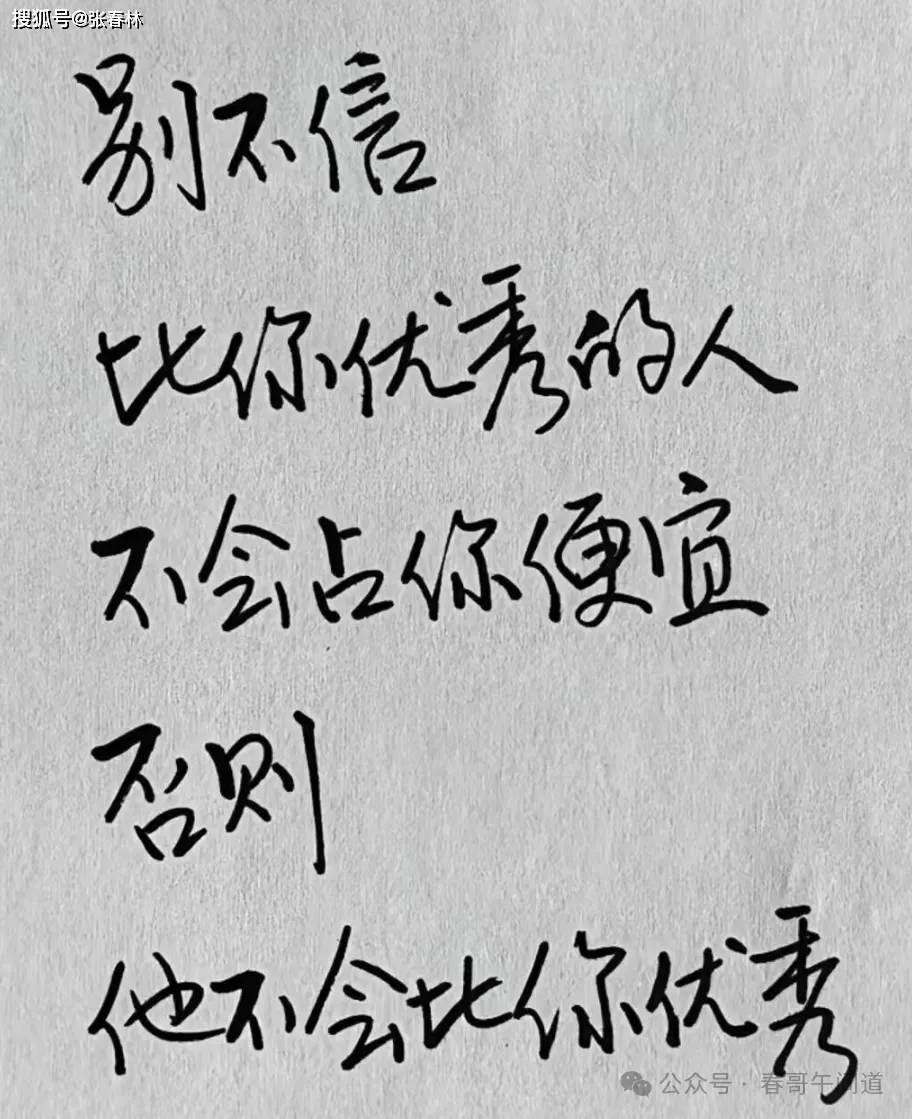 搜狐号@张春林
别不信
比你优秀的人
不会占你便宜
否则
他不会比你优秀
公众号·春哥午间道